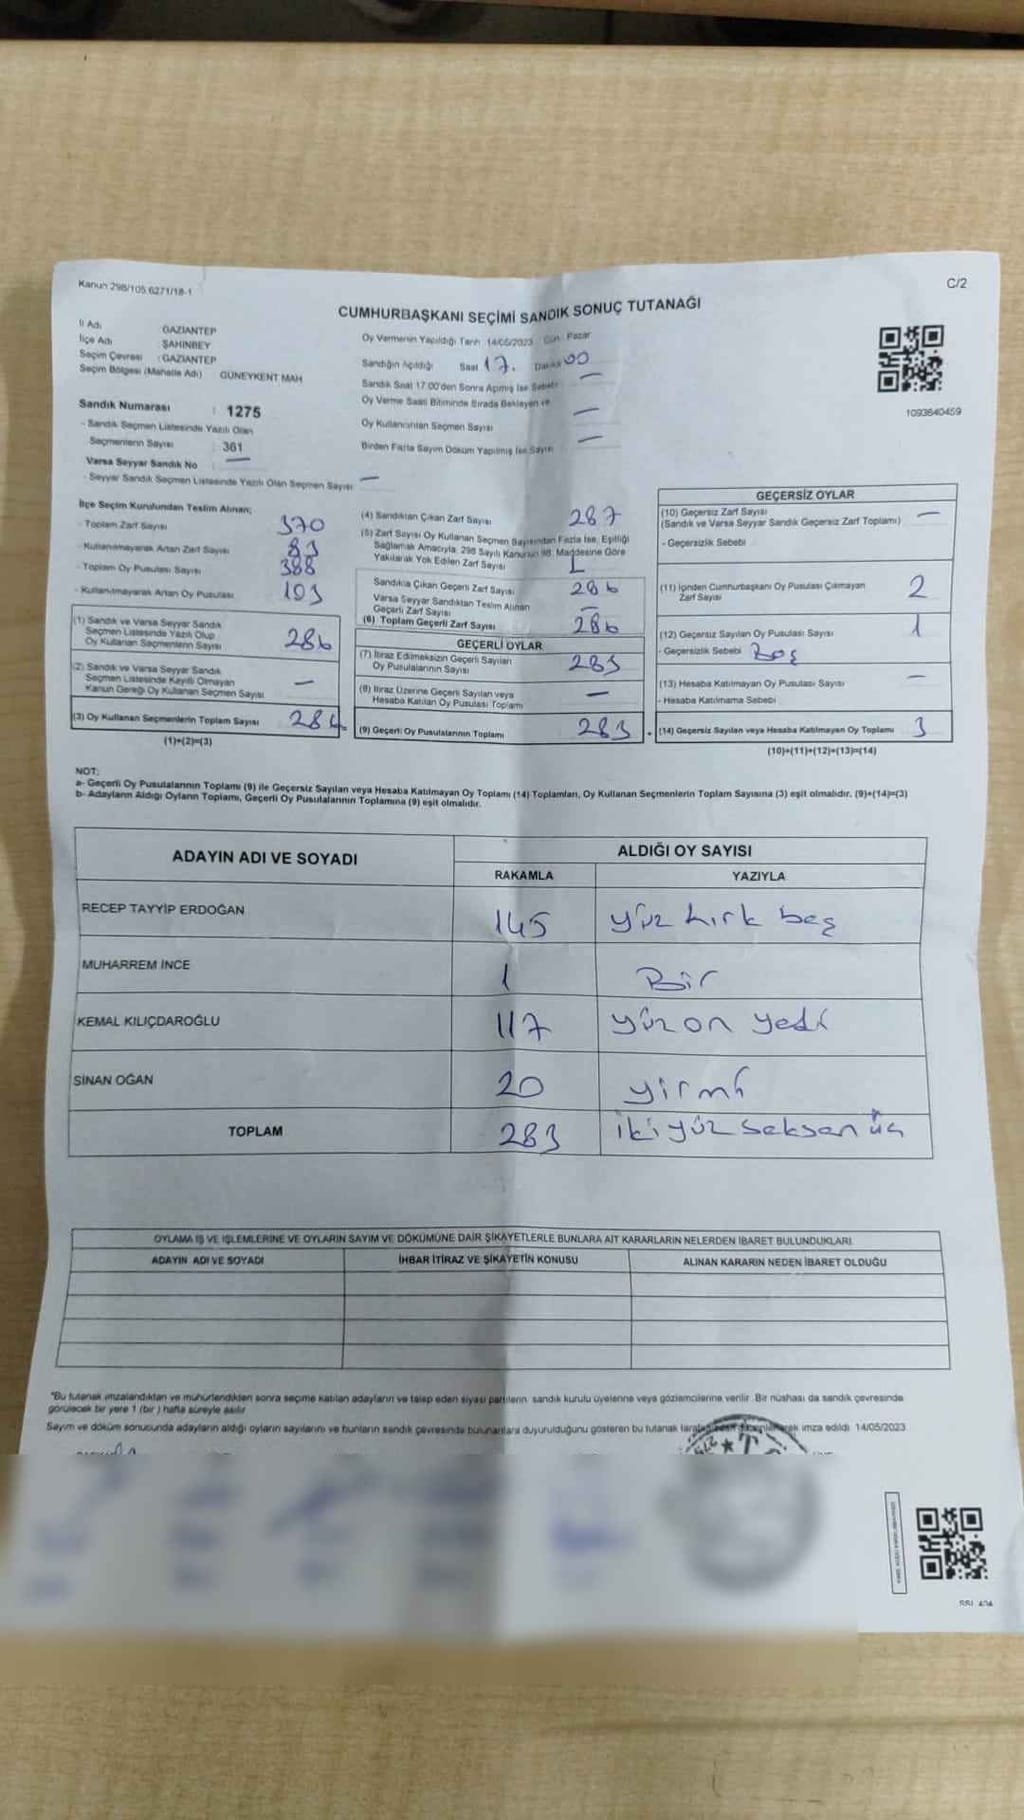 Kanun 298/105 6271/18-1
C/2
CUMHURBAŞKANI SEÇİMİ SANDIK SONUÇ TUTANAĞI
İl Adı GAZİANTEP
İlçe Adı ŞAHİNBEY
Seçim Çevresi : GAZİANTEP
Seçim Bölgesi (Mahalle Adı) GÜNEYKENT MAH
Sandık Numarası : 1275
- Sandık Seçmen Listesinde Yazılı Olan
Seçmenlerin Sayısı : 361
Varsa Seyyar Sandık No —
- Seyyar Sandık Seçmen Listesinde Yazılı Olan Seçmen Sayısı —
Oy Vermenin Yapıldığı Tarih 14/05/2023 Gün Pazar
Sandığın Açıldığı Saat 17. Dakika 00
Sandık Saat 17:00'den Sonra Açılmış İse Sebebi —
Oy Verme Saati Bitiminde Sırada Bekleyen ve
Oy Kullandırılan Seçmen Sayısı —
Birden Fazla Sayım Döküm Yapılmış İse Sayısı —
1093640459
İlçe Seçim Kurulundan Teslim Alınan;
- Toplam Zarf Sayısı 370
- Kullanılmayarak Artan Zarf Sayısı 83
- Toplam Oy Pusulası Sayısı 388
- Kullanılmayarak Artan Oy Pusulası 103
(1) Sandık ve Varsa Seyyar Sandık
Seçmen Listesinde Yazılı Olup
Oy Kullanan Seçmenlerin Sayısı 286
(2) Sandık ve Varsa Seyyar Sandık
Seçmen Listesinde Kayıtlı Olmayan
Kanun Gereği Oy Kullanan Seçmen Sayısı —
(3) Oy Kullanan Seçmenlerin Toplam Sayısı 286
(1)+(2)=(3)
(4) Sandıktan Çıkan Zarf Sayısı 287
(5) Zarf Sayısı Oy Kullanan Seçmen Sayısından Fazla İse, Eşitliği
Sağlamak Amacıyla, 298 Sayılı Kanunun 98. Maddesine Göre
Yakılarak Yok Edilen Zarf Sayısı 1
Sandıkta Çıkan Geçerli Zarf Sayısı 286
Varsa Seyyar Sandıktan Teslim Alınan
Geçerli Zarf Sayısı —
(6) Toplam Geçerli Zarf Sayısı 286
GEÇERLİ OYLAR
(7) İtiraz Edilmeksizin Geçerli Sayılan
Oy Pusulalarının Sayısı 283
(8) İtiraz Üzerine Geçerli Sayılan veya
Hesaba Katılan Oy Pusulası Toplamı —
(9) Geçerli Oy Pusulalarının Toplamı 283
GEÇERSİZ OYLAR
(10) Geçersiz Zarf Sayısı —
(Sandık ve Varsa Seyyar Sandık Geçersiz Zarf Toplamı)
- Geçersizlik Sebebi
(11) İçinden Cumhurbaşkanı Oy Pusulası Çıkmayan
Zarf Sayısı 2
(12) Geçersiz Sayılan Oy Pusulası Sayısı 1
- Geçersizlik Sebebi Boş
(13) Hesaba Katılmayan Oy Pusulası Sayısı —
- Hesaba Katılmama Sebebi
(14) Geçersiz Sayılan veya Hesaba Katılmayan Oy Toplamı 3
(10)+(11)+(12)+(13)=(14)
NOT:
a- Geçerli Oy Pusulalarının Toplamı (9) ile Geçersiz Sayılan veya Hesaba Katılmayan Oy Toplamı (14) Toplamları, Oy Kullanan Seçmenlerin Toplam Sayısına (3) eşit olmalıdır. (9)+(14)=(3)
b- Adayların Aldığı Oyların Toplamı, Geçerli Oy Pusulalarının Toplamına (9) eşit olmalıdır.
ADAYIN ADI VE SOYADI ALDIĞI OY SAYISI
RAKAMLA YAZIYLA
RECEP TAYYİP ERDOĞAN 145 yüz kırk beş
MUHARREM İNCE 1 Bir
KEMAL KILIÇDAROĞLU 117 yüz on yedi
SİNAN OĞAN 20 yirmi
TOPLAM 283 iki yüz seksen üç
OYLAMA İŞ VE İŞLEMLERİNE VE OYLARIN SAYIM VE DÖKÜMÜNE DAİR ŞİKAYETLERLE BUNLARA AİT KARARLARIN NELERDEN İBARET BULUNDUKLARI
ADAYIN ADI VE SOYADI İHBAR İTİRAZ VE ŞİKAYETİN KONUSU ALINAN KARARIN NEDEN İBARET OLDUĞU
"Bu tutanak imzalandıktan ve mühürlendikten sonra seçime katılan adayların ve talep eden siyasi partilerin sandık kurulu üyelerine veya gözlemcilerine verilir. Bir nüshası da sandık çevresinde
görülecek bir yere 1 (bir) hafta süreyle asılır
Sayım ve döküm sonucunda adayların aldığı oyların sayılarını ve bunların sandık çevresinde bulunanlara duyurulduğunu gösteren bu tutanak imza edildi 14/05/2023